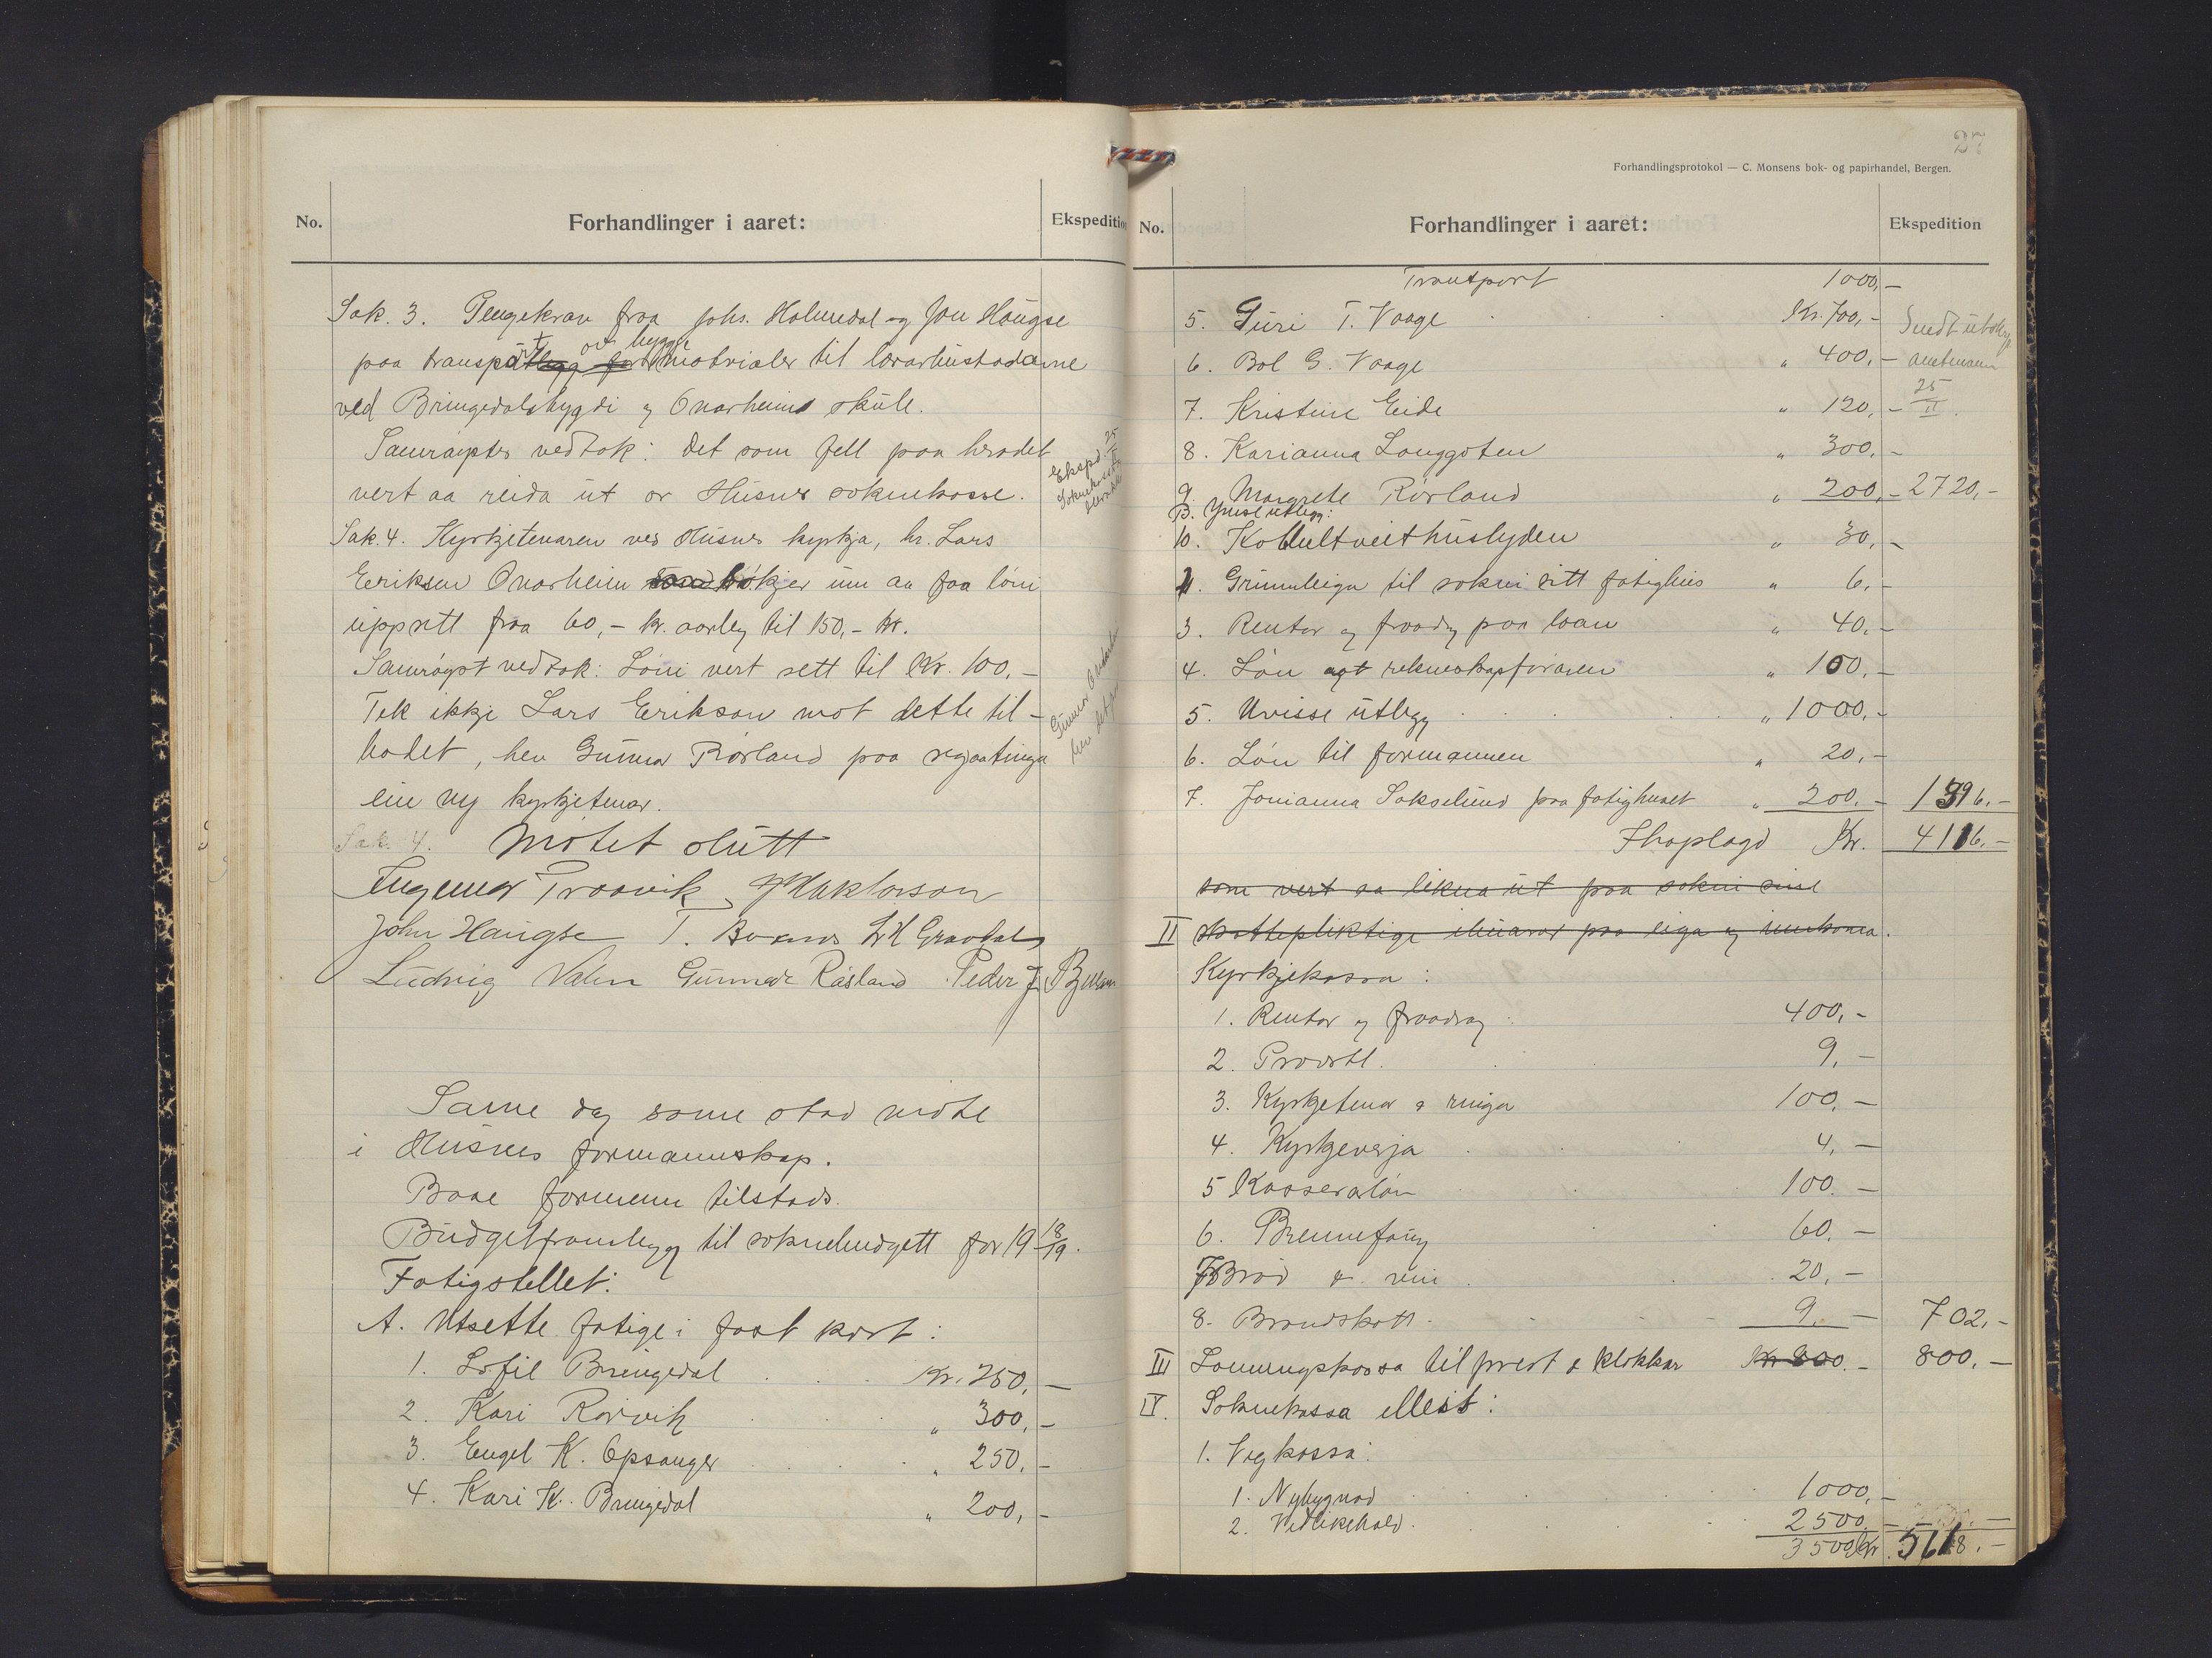 No. Forhandlinger i aaret: Ekspedition
Sak. 3. Pengekrav fraa Johs. Holmedal og Jon Haugse
paa transport av bygge matrialer til lærarbustadarne
ved Bringedalsbygdi og Onarheims skule.
Samrøystes vedtok: det som fell paa heradet
vert aa reida ut or Husnes soknekasse.
Ekspd. 25/II
Sak. 4. Kyrkjetenaren ved Husnes kyrkja, hr. Lars
Eeriksen Onarheim søkjer um aa faa løni
uppsett fraa 60,- kr. aarleg til 150,- kr.
Samrøyst vedtok: Løni vert sett til Kr. 100,-
Tek ikkje Lars Eerikson mot dette til-
bodet, hev Gunnar Røsland paa segja tinga
ein ny kyrkjetenar.
Sak. 4. Møtet slutt
Ingemar Traavik, J Haktorson
John Haugse T. Boxnes L H Gravdal
Ludvig Valen Gunnar Røsland Peder J.
Same dag same stad møte
i Husnes formannskap.
Baae formenn tilstads.
Budgetframlegg til soknebudgett for 19 18/19.
Fatigstellet:
A. Utsette fatige i fast kost:
1. Lofil Bringedal Kr. 250,-
2. Kari Rørvik " 300,-
3. Engel K. Opsanger " 250,-
4. Kari K. Bringedal " 200,-
27
Forhandlingsprotokol — C. Monsens bok- og papirhandel, Bergen.
No. Forhandlinger i aaret: Ekspedition
Transport 1000,-
5. Guri T. Vaage Kr. 700,-
6. Bol G. Vaage " 400,- amtmann
7. Kristine Eide " 120,- 25/II
8. Karianna Langgoten " 300,-
9. Margrete Rørland " 200,- 2720,-
B. Ymse utlegg:
10. Kobbultveithuslyden " 30,-
2. Grunnleiga til sokni sitt fatighus " 6,-
3. Rentor og fraadrag paa laan " 40,-
4. Løn aat rekneskapsføraren " 100,-
5. Uvisse utlegg " 1000,-
6. Løn til formannen " 20,-
7. Jonianna Sakselund paa fatighuset " 200,- 1396,-
Ihoplagd Kr. 4116,-
som vert aa likna ut paa sokni sine
II skattepliktige ibuarar paa eiga og innkoma.
Kyrkjekassa:
1. Rentor og fraadrag: 400,-
2. Provstl. 9,-
3. Kyrkjetenar & ringar 100,-
4. Kyrkjeverja 4,-
5 Kasserarløn 100,-
6. Brennefang 60,-
7. Brød & vin 20,-
8. Brandskatt 9,- 702,-
III Lønningskassa til prest & klokkar Kr 800,- 800,-
IV. Soknekassa elles:
1. Vegkassa:
1. Nybygnad 1000,-
2. Vedlikehald 2500,-
3500,- Kr. 5618,-